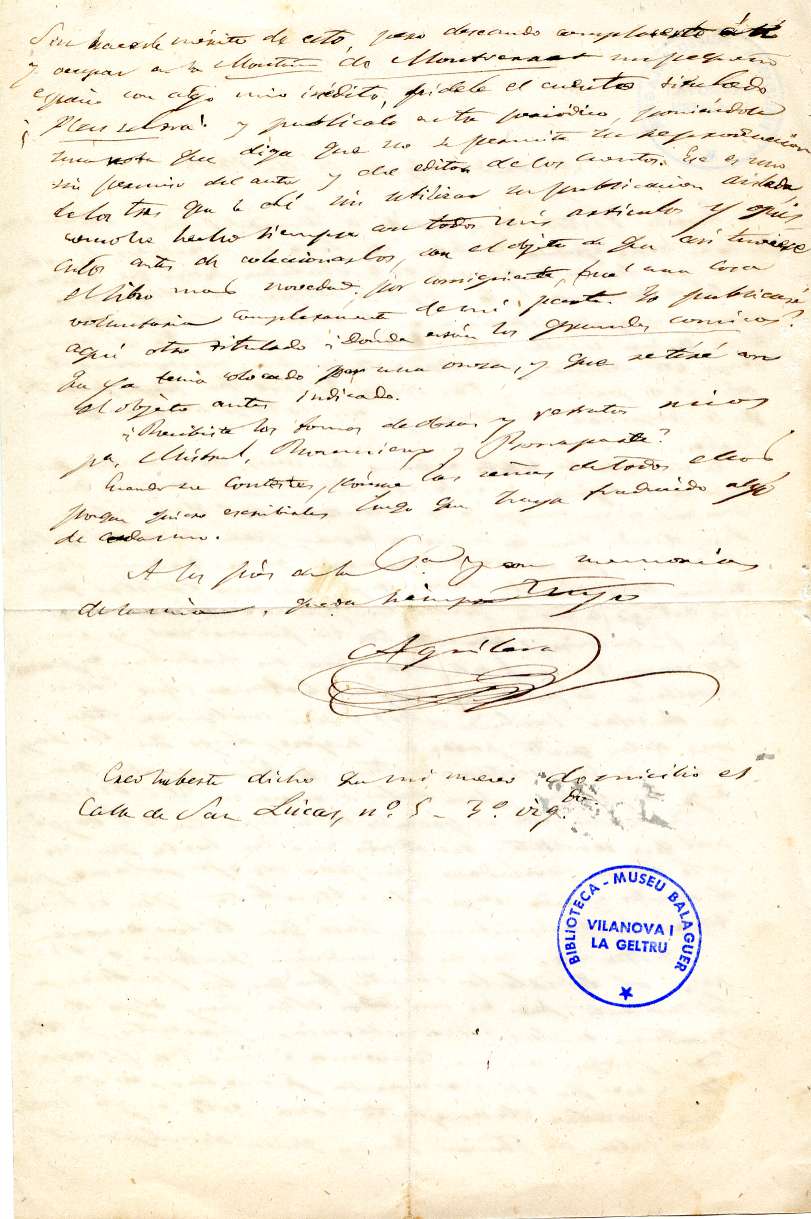 Sin hacerle mérito de esto, pero deseando complacerte á tí
y ocupar en la Montaña de Montserrat un pequeño
espacio con algo mio inédito, pídele el cuento titulado
¡ y publícalo en tu periódico, poniéndole
una nota que diga que no se permite la reproduccion
sin permiso del autor y del editor de los Cuentos. Ese es uno
de los tres que le dí sin utilizar su publicacion aislada
como he hecho siempre con todos mis artículos y opús
culos antes de coleccionarlos, con el objeto de que así tuviese
el libro mas novedad. por consiguiente, fué una cosa
voluntaria completamente de mi parte. Yo publicaré
aquí otro titulado ¿Dónde están los grandes comicos?
que ya tenia colocado por una onza, y que retiré con
el objeto antes indicado.
¿Recibiste los tomos de obras y retratos mios
pa. Mistral, y Bonaparte?
Cuando me contestes, ponme las señas de todos ellos
porque quiero escribirles luego que haya traducido algo
de cada uno.
A los piés de la Sa. y con memorias
de la mia, queda siempre tuyo
Aguilera
Creo haberte dicho que mi nuevo domicilio es
Calle de San Lúcas, nº. 5 - 3º. izq.
BIBLIOTECA - MUSEU BALAGUER
VILANOVA I
LA GELTRU